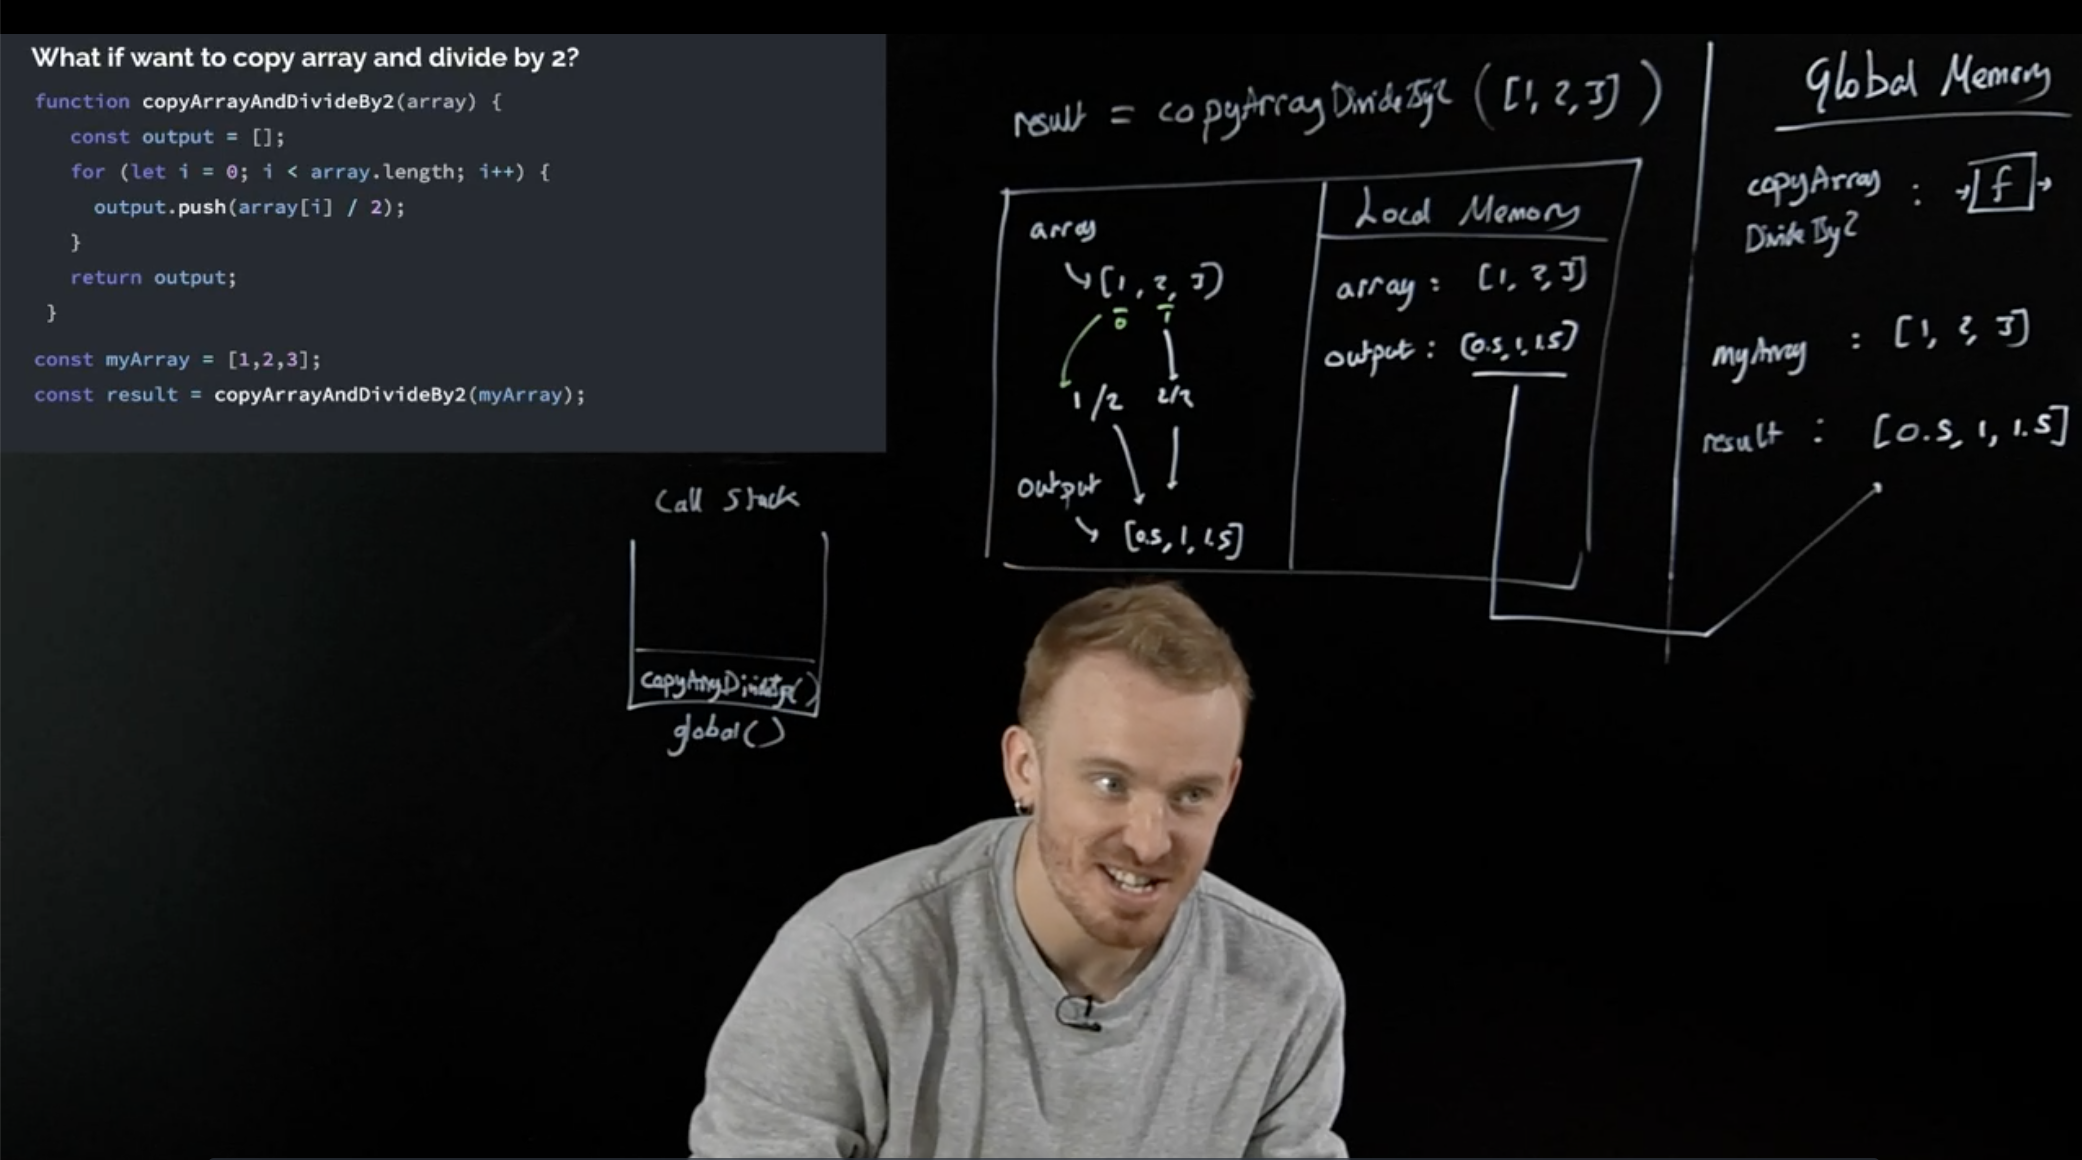 What if want to copy array and divide by 2?
function copyArrayAndDivideBy2(array) {
const output = [];
for (let i = 0; i < array.length; i++) {
output.push(array[i] / 2);
}
return output;
}
const myArray = [1,2,3];
const result = copyArrayAndDivideBy2(myArray);
result = copyArrayDivideBy2 ([1, 2, 3])
array
[1, 2, 3]
0 1
1/2 2/2
output
[0.5, 1, 1.5]
Local Memory
array : [1, 2, 3]
output : [0.5, 1, 1.5]
Global Memory
copyArray : f
DivideBy2
myArray : [1, 2, 3]
result : [0.5, 1, 1.5]
Call Stack
copyArrayDivideBy2()
global()